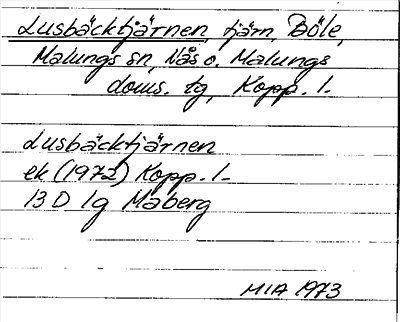 Lusbäcktjärnen, tjärn, Böle,
Malungs sn, Nås o. Malungs
doms. tg, Kopp. l.
Lusbäcktjärnen
ek (1972) Kopp. l.
13 D 1g Maberg
MIA 1973